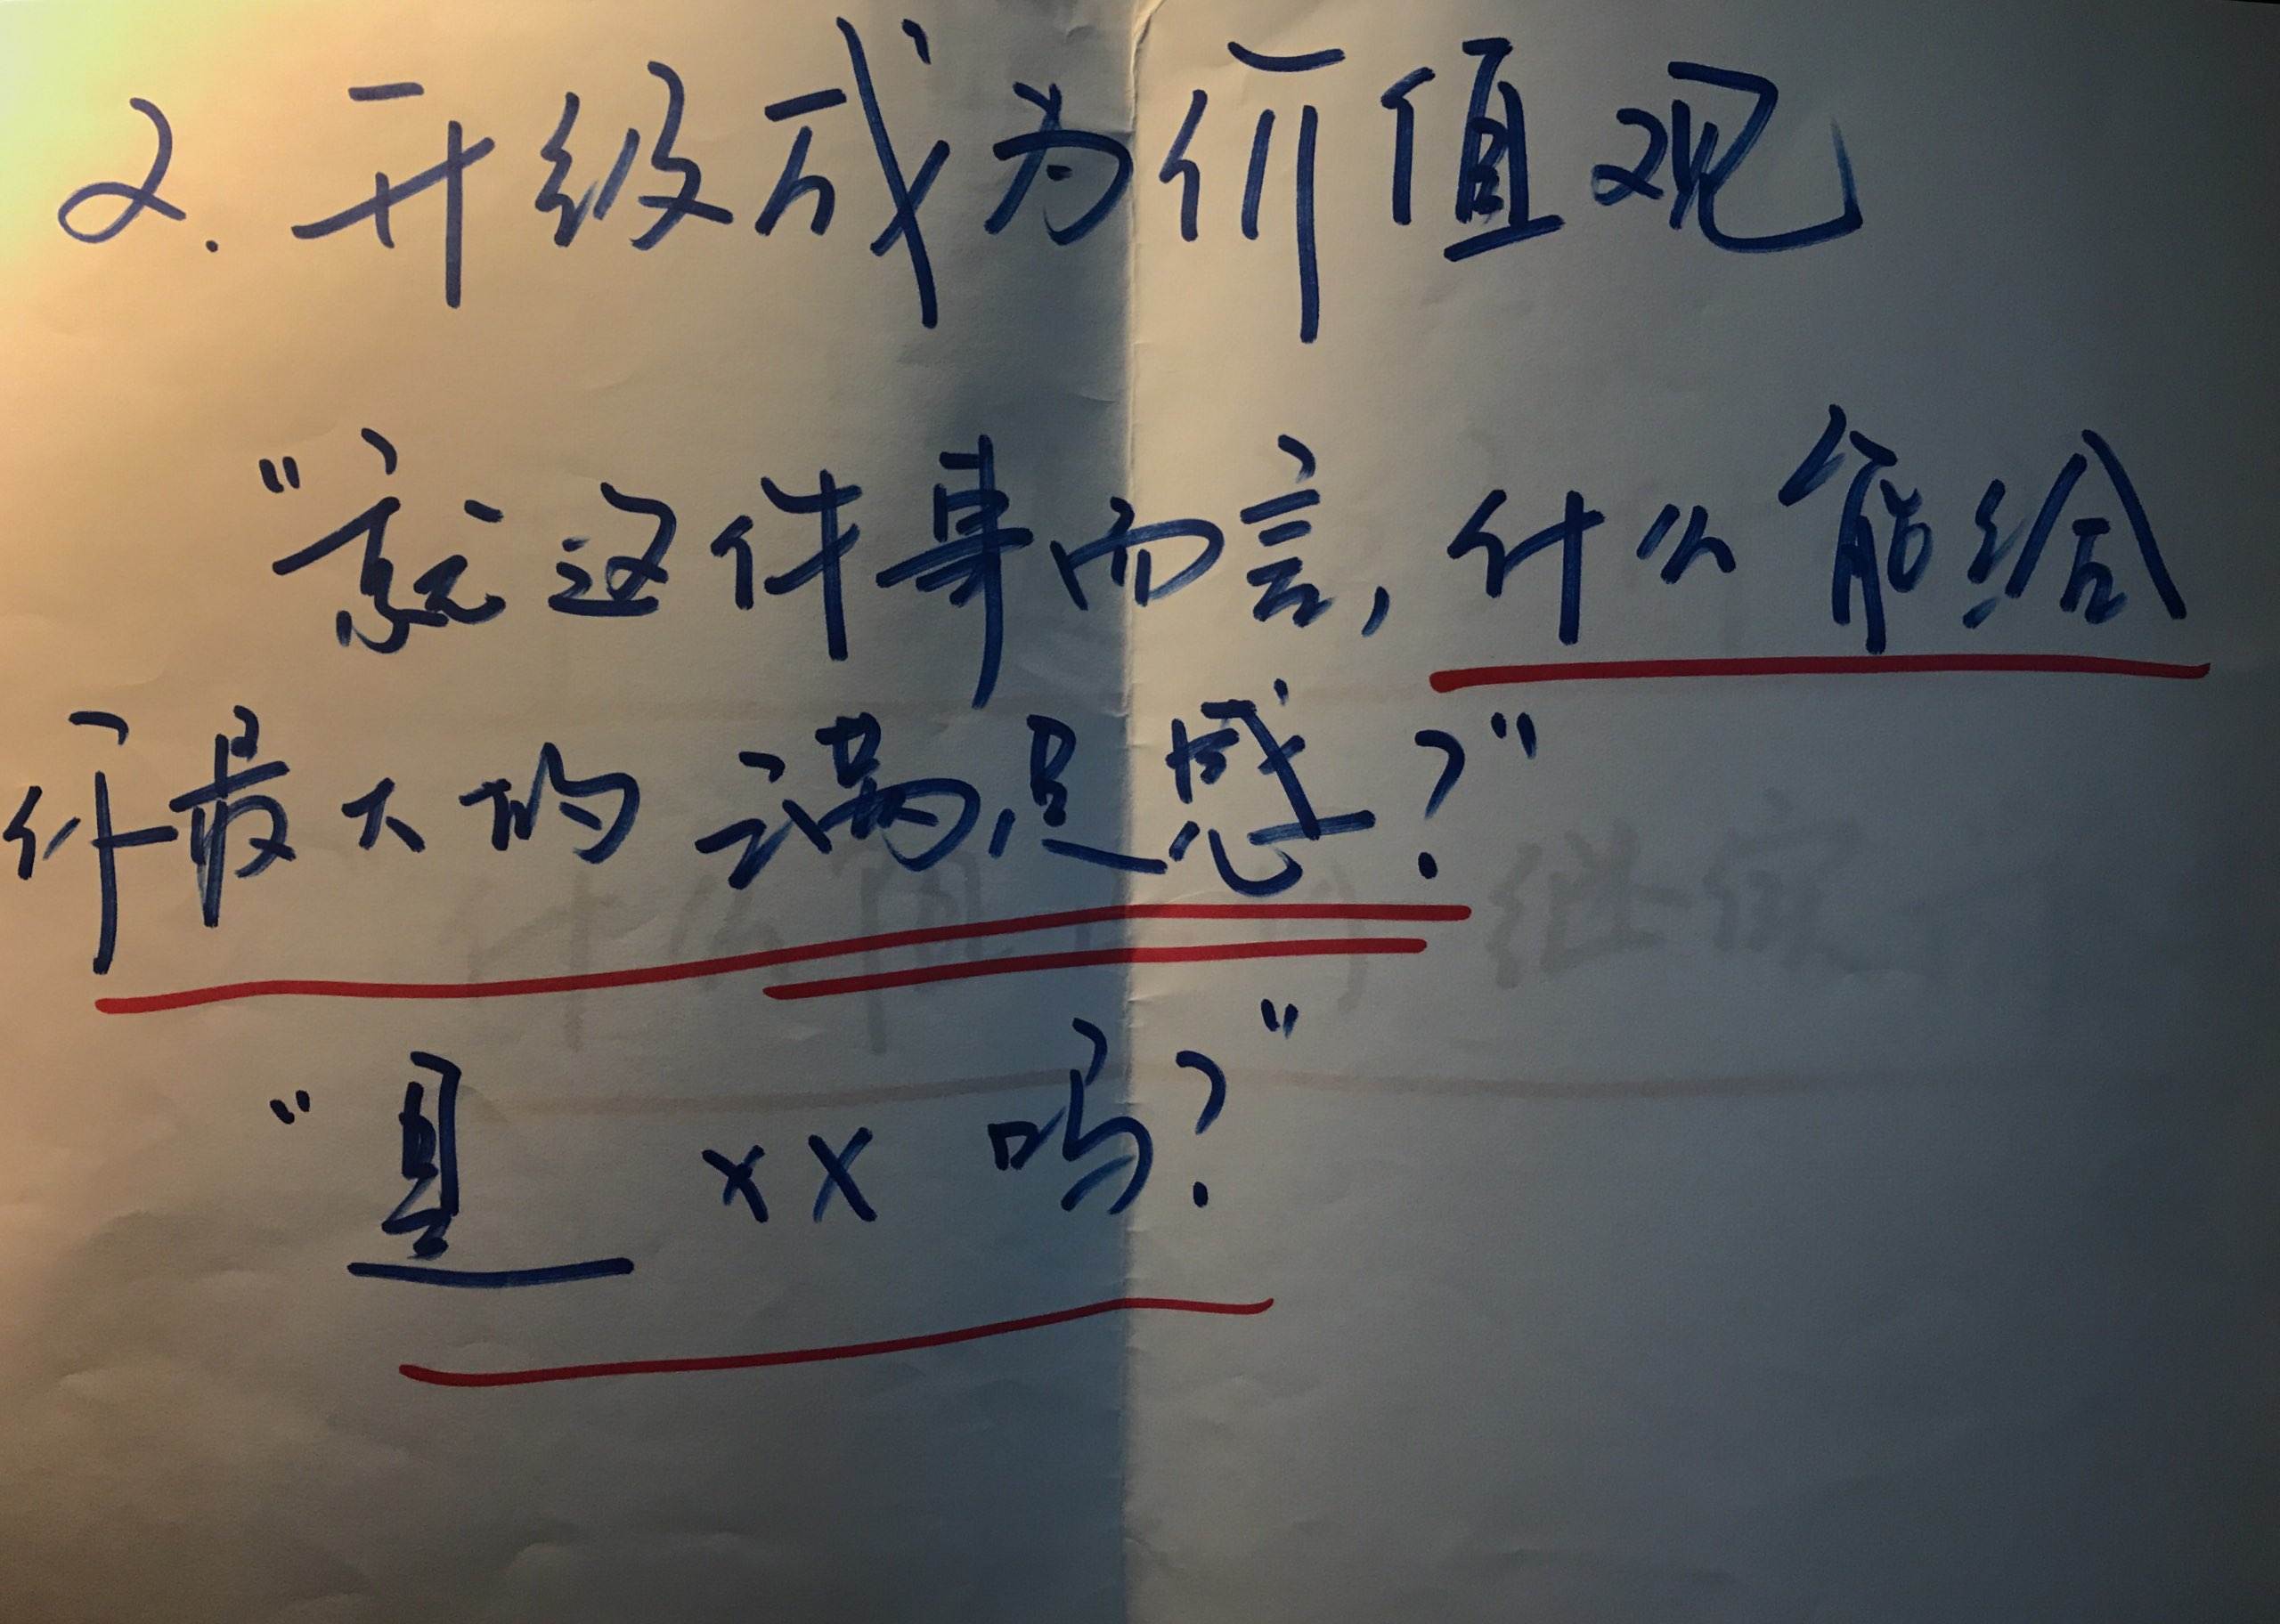 2. 升级成为价值观
"就这件事而言,什么能给
你最大的满足感?"
"是 xx 吗?"